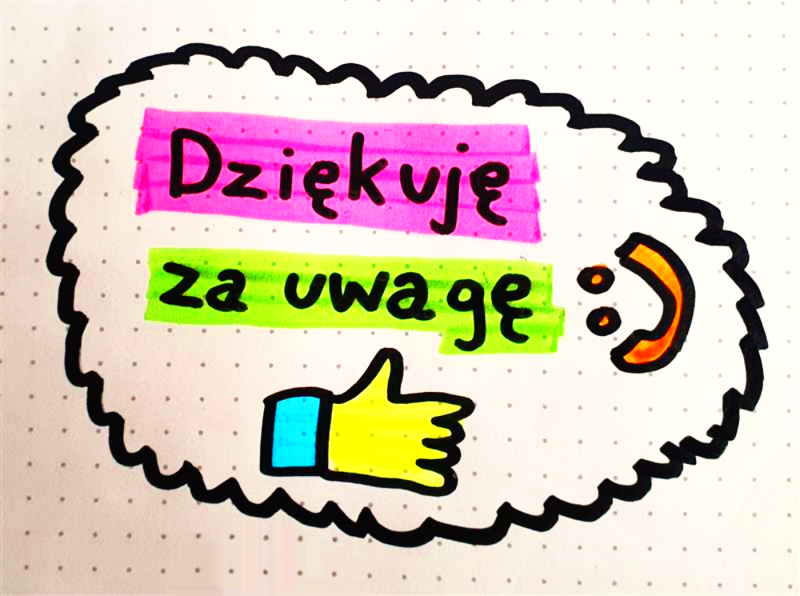 Dziękuję
za uwagę
:)